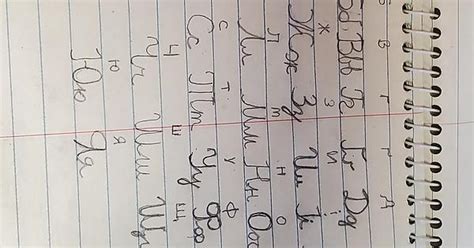 В Г Ґ Д
Бб Вв Гг Ґґ Дд
ж з и і
Жж Зз Ии Іі
л м н о
Лл Мм Нн Оо
с т у ф
Сс Тт Уу Фф
ч ш щ
Чч Шш Щщ
ю я
Юю Яя